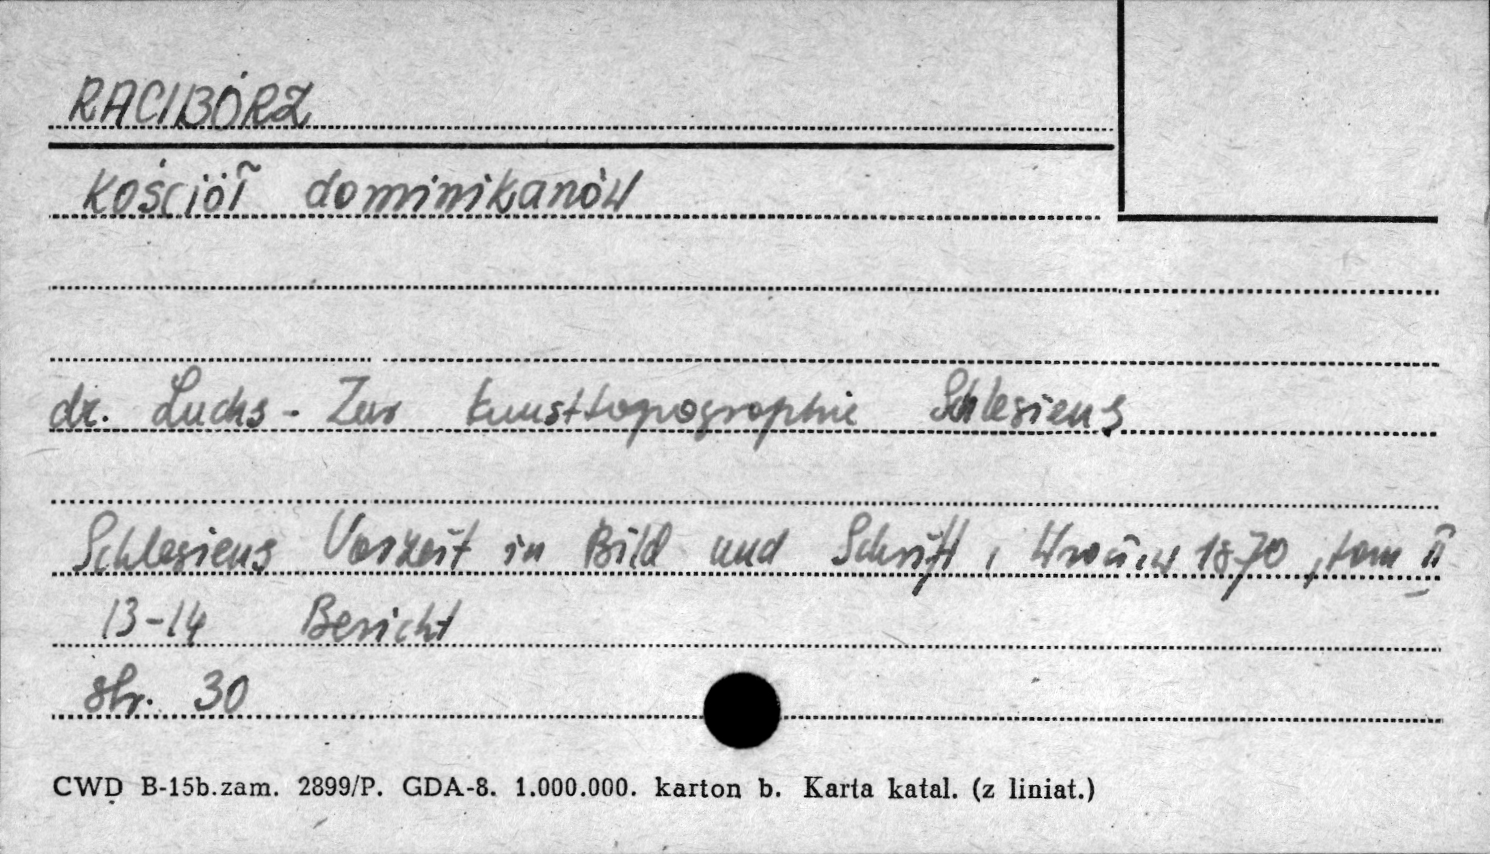 RACIBÓRZ
Kościół dominikanów
dr. Luchs - Zur Kunsttopographie Schlesiens
Schlesiens Vorzeit in Bild und Schrift, Wrocław 1870, tom II
13-14 Bericht
str. 30
CWD B-15b.zam. 2899/P. GDA-8. 1.000.000. karton b. Karta katal. (z liniat.)